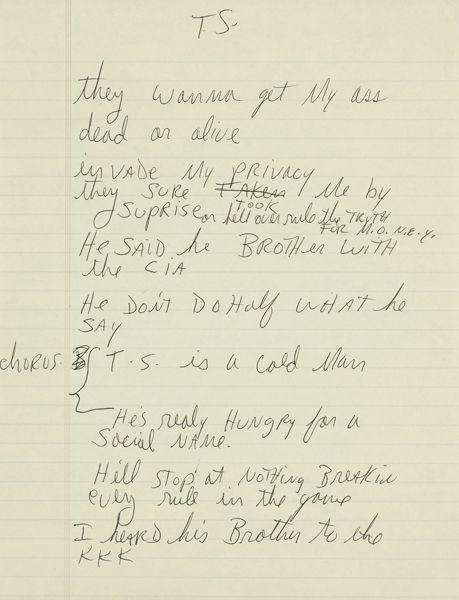 T.S.
they wanna get My ass
dead or alive
invADE My privacy
they SURE TAKen Me by
TOOK
SUpRise or he'll over rule the TRUTH
FOR M.O.N.E.Y.
He SAID he BROTHer WITH
the CIA
He DON'T DO Half WHAT he
SAY
chorus. T.S. is a cold Man
He's realy HUNGRY for a
Social NAME.
He'll STOP at NOTHING BreAKin
every rule in the game
I heARD his Brother to the
KKK